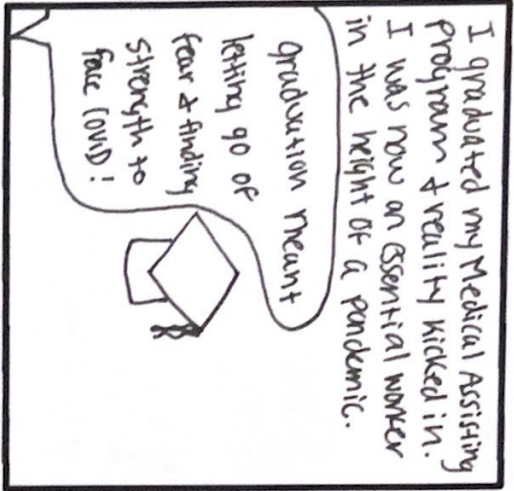 I graduated my Medical Assisting
program & reality kicked in.
I was now an essential worker
in the height of a pandemic.
Graduation meant
letting go of
fear & finding
strength to
face COVID!